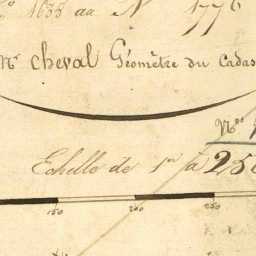 N° 1688 au N° 1776
Mr cheval Géomètre du Cadas
Nos
Echelle de 1 à 250
150 200 250